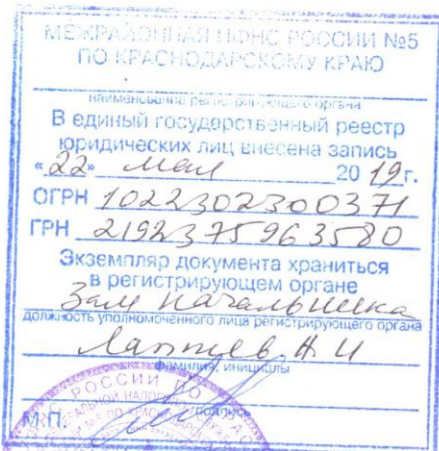 МЕЖРАЙОННАЯ ИФНС РОССИИ №5
ПО КРАСНОДАРСКОМУ КРАЮ
наименование регистрирующего органа
В единый государственный реестр
юридических лиц внесена запись
«22» мая 2019г.
ОГРН 1022302300371
ГРН 2192375963580
Экземпляр документа храниться
в регистрирующем органе
Зам начальника
должность уполномоченного лица регистрирующего органа
Лаптев А И
фамилия, инициалы
М.П. подпись
РОССИИ ПО
НАЛОГО
ПО КРАСНОДАР